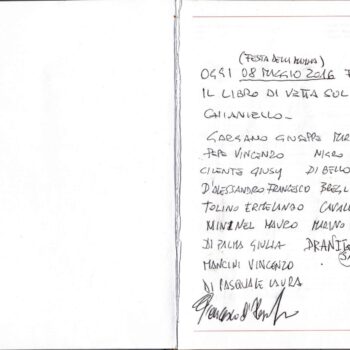 (FESTA DELLA MAMMA)
OGGI 08 MAGGIO 2016
IL LIBRO DI VETTA SUL
CHIANIELLO-
GARGANO GIUSEPPE
PEPE VINCENZO NIGRO
CILENTE GIUSY DI BELLO
D'ALESSANDRO FRANCESCO
TOLINO ERMELANDO CAVAL
MININEL MAURO MARINO
DI PALMA GIULIA
MANCINI VINCENZO
DI PASQUALE LAURA